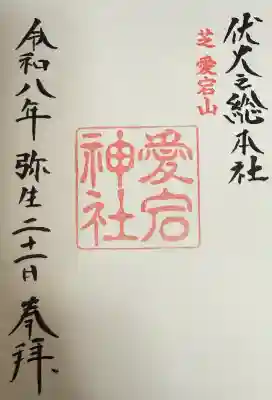 伏火之総本社
芝愛宕山
愛宕神社
令和八年弥生二十一日奉拝